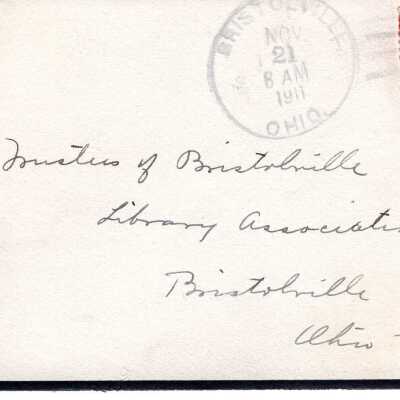 BRISTOLVILLE,
NOV
21
8 AM
1911
OHIO.
Trustees of Bristolville
Library Associatio
Bristolville
Ohio